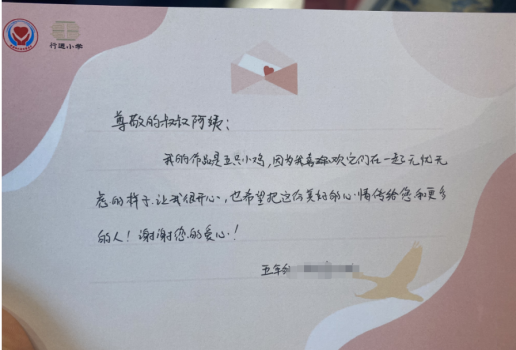 行道小学
尊敬的叔叔阿姨：
我的作品是五只小鸡，因为我喜欢它们在一起无忧无
虑的样子.让我很开心，也希望把这份美好的心情传给您和更多
的人！谢谢您的爱心！
五年